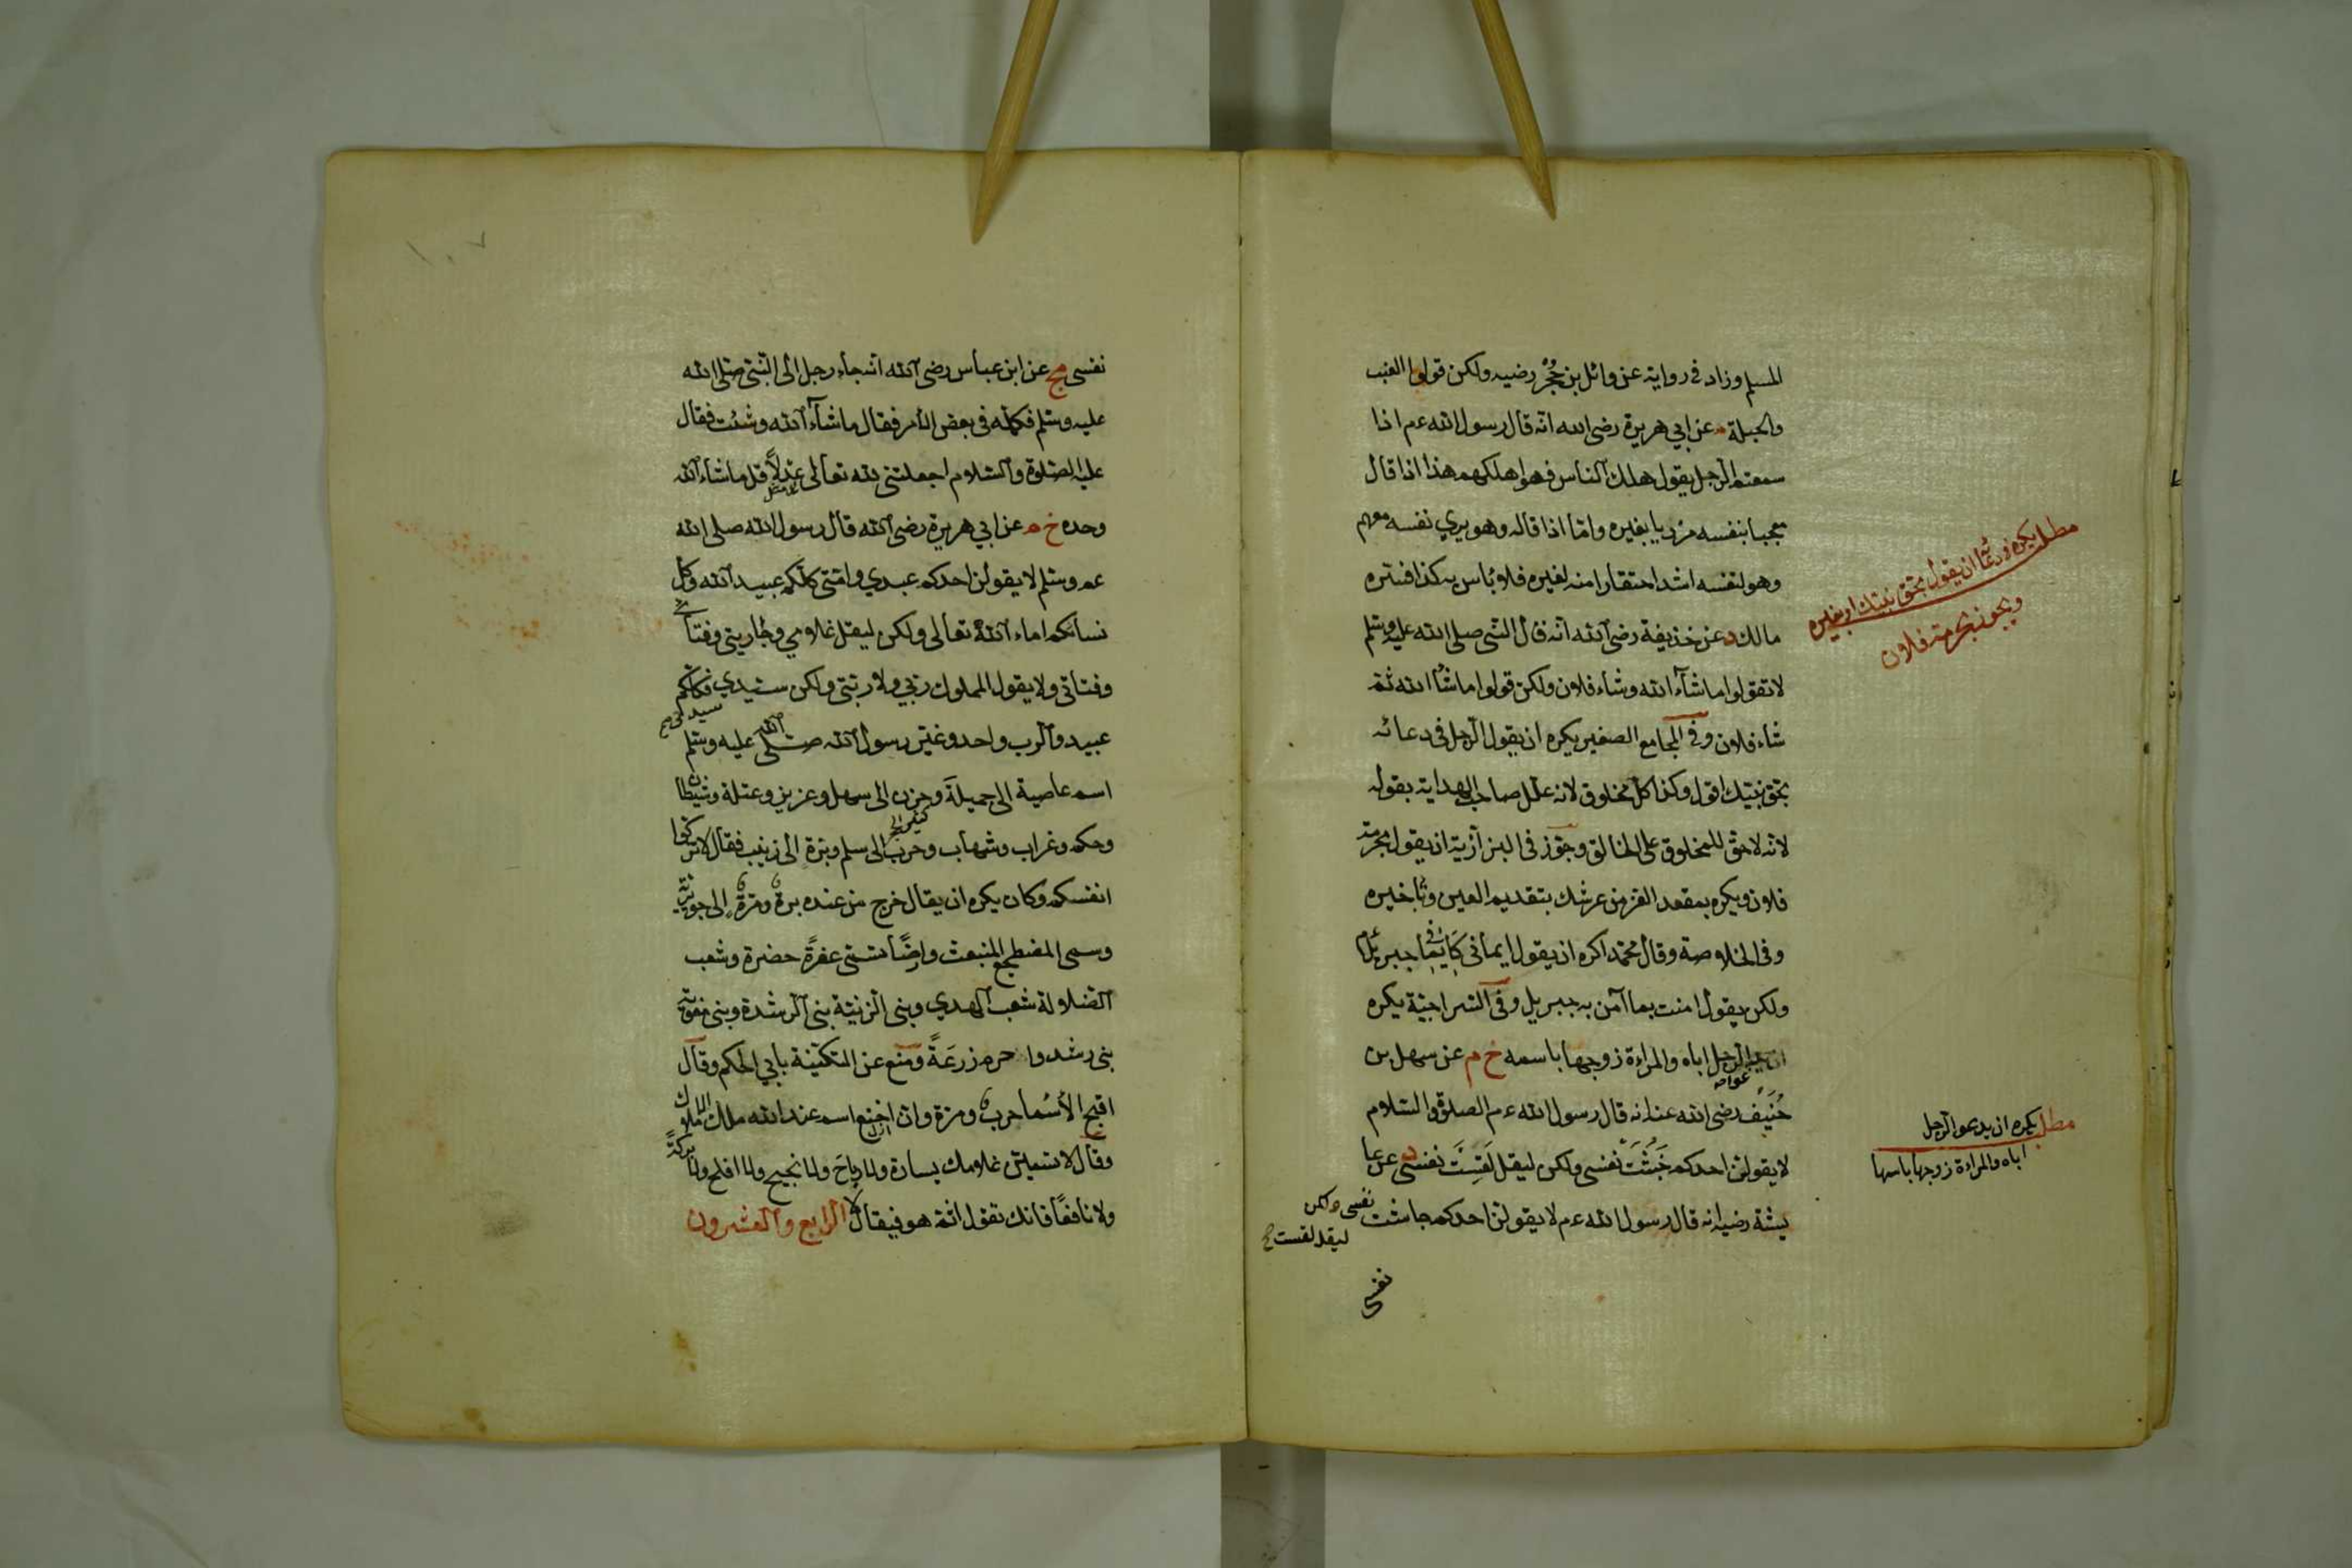 المسلم وزاد فى رواية عن وائل بن حُجُر رضيه ولكن قولوا العنب
والحبلة م عن ابي هريرة رضى الله انه قال رسول الله عم اذا
سمعتم الرجل يقول هلك الناس فهو اهلكهم هذا اذا قال
معجبا بنفسه مزديا بغيره واما اذا قاله وهو يري نفسه معهم
وهو لنفسه اشد احتقارا منه لغيره فلا بأس به كذا فسره
مالك د عن حذيفة رضى الله انه قال النبى صلى الله عليه وسلم
لا تقولوا ما شآء الله وشاء فلان ولكن قولوا ما شأ الله ثم
شاء فلان وفى الجامع الصغير يكره ان يقول الرجل فى دعائه
بحق نبيك اقول وكذا كل مخلوق لانه علل صاحب الهداية بقوله
لانه لا حق للمخلوق على الخالق وجوز فى البزازية ان يقول بحرمة
فلان ويكره بمقعد العز من عرشك بتقديم العين وتأخيره
وفى الخلاصة وقال محمد اكره ان يقول ايمانى كايمان جبريل
ولكن يقول امنت بما آمن به جبريل وفى السراجية يكره
ان يدعو الرجل اباه والمراءة زوجها باسمه خ م عن سهل بن
حُنَيف رضى الله عنه انه قال رسول الله عم الصلوة والسلام
لا يقولن احدكم خَبُثَت نفسى ولكن ليقل لَقِسَت نفسى د عن عا
يشة رضيه انه قال رسول الله عم لا يقولن احدكم جاشت
نفسى ولكن
ليقل لقست صح
نفسى
مطلب يكره فى دعائه ان يقول بحق نبيك او بغيره
ويجوز بحرمة فلان
مطلب يكره ان يدعو الرجل
اباه والمراءة زوجها باسمها
١٠٧
نفسى مج عن ابن عباس رضى الله انه جاء رجل الى النبى صلى الله
عليه وسلم فكلمه فى بعض الأمر فقال ما شآء الله وشئت فقال
عليه الصلوة والسلام اجعلتنى لله تعالى عدلًا قل ما شاء الله
وحده خ م عن ابي هريرة رضى الله قال رسول الله صلى الله
عم وسلم لا يقولن احدكم عبدي وامتى كلكم عبيد الله وكل
نسائكم اماء الله تعالى ولكن ليقل غلامي وجاريتى وفتاى
وفتاتى ولا يقول المملوك ربي ولا ربتى ولكن سيدي فكلكم
عبيد والرب واحد وغير رسول الله صلى الله عليه وسلم
اسم عاصية الى جميلة وحزن الى سهل وعزيز وعتلة وشيطان
وحكم وغراب وشهاب وحرب الى سلم وبرة الى زينب فقال لا تزكوا
انفسكم وكان يكره ان يقال خرج من عنده برة ومرة الى جويرية
وسمى المضطجع المنبعث وارضًا تسمى عفرةً خضرة وشعب
الضلالة شعب الهدي وبنى الزنية بنى الرشدة وبنى مغوية
بنى رشد و حرم زرعَةً ومنع عن التكنية بابي الحكم وقال
اقبح الأسما حرب ومرة وان اخنع اسم عند الله ملك الاملاك
وقال لا تسمين غلامك يسارة ولا رباحَ ولا نجيح ولا افلح ولا بركة
ولا نافعًا فانك تقول اثمة هو فيقال لا الرابع والعشرون